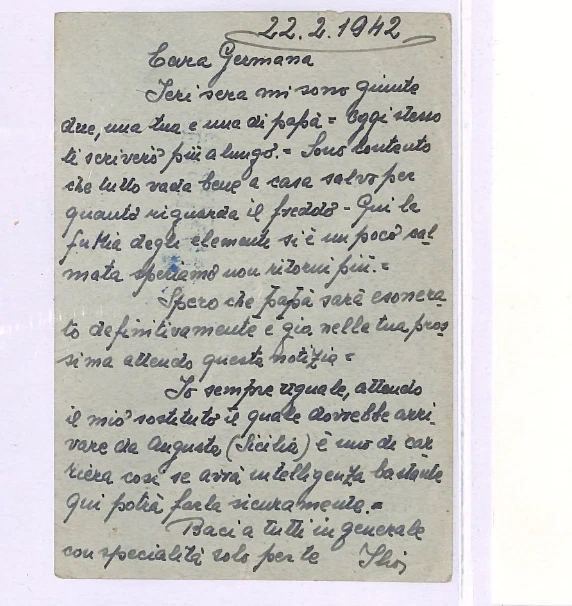 22.2.1942
Cara Germana
Ieri sera mi sono giunte
due, una tua e una di papà = Oggi stesso
ti scriverò più a lungo. = Sono contento
che tutto vada bene a casa salvo per
quanto riguarda il freddo - Qui la
furia degli elementi si è un poco cal=
mata speriamo non ritorni più. =
Spero che papà sarà esonera=
to definitivamente e già nella tua pros=
sima attendo questa notizia =
Io sempre uguale, attendo
il mio sostituto il quale dovrebbe arri=
vare da Augusta (Sicilia) è uno di car=
riera così se avrà intelligenza bastante
qui potrà farla sicuramente. =
Baci a tutti in generale
con specialità solo per te